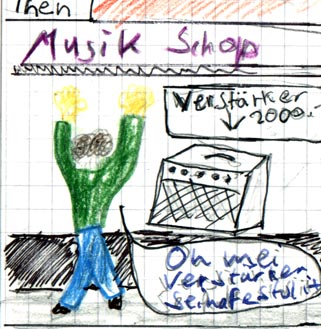 Then
Musik Schop
Verstärker
2000.-
Oh mei
Verstärker